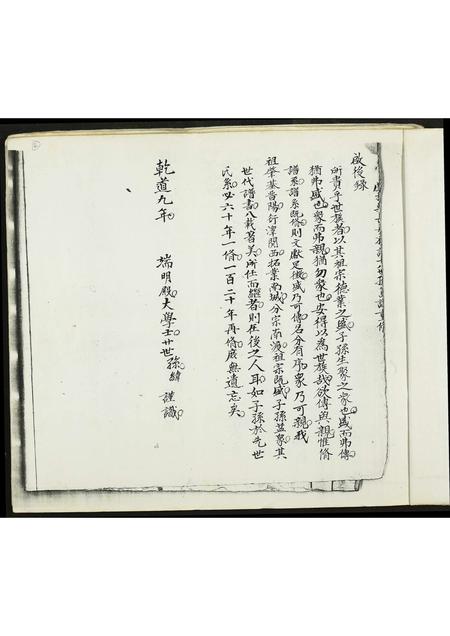 啟後錄
所貴乎世族者以其祖宗德業之盛子孫生聚之衆也盛而弗傳
猶弗盛也衆而弗親猶勿衆也安得以為世族哉欲傳與親惟脩
譜系譜系既脩則文獻足徵盛乃可傳名分有序衆乃可親我
祖肇基晉陽衍潭閩西拓業南城分宗南渡祖宗既盛子孫益衆其
世代譜書八載著矣所任而繼者則在後之人耳如子孫於先世
氏系必六十年一脩一百二十年再脩庶無遺忘矣
乾道九年 端明殿大學士廿世孫緯謹識